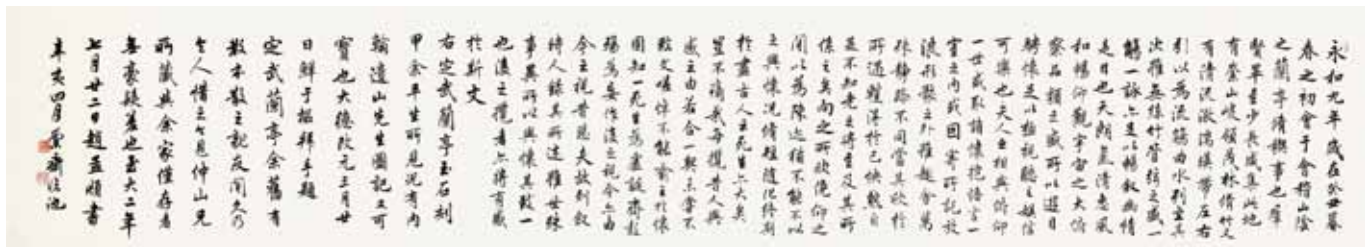 永和九年歲在癸丑暮
春之初會于會稽山陰
之蘭亭脩禊事也羣
賢畢至少長咸集此地
有崇山峻領茂林脩竹又
有清流激湍暎帶左右
引以為流觴曲水列坐其
次雖無絲竹管弦之盛一
觴一詠亦足以暢敘幽情
是日也天朗氣清惠風
和暢仰觀宇宙之大俯
察品類之盛所以遊目
騁懷足以極視聽之娛信
可樂也夫人之相與俯仰
一世或取諸懷抱悟言一
室之內或因寄所託放
浪形骸之外雖趣舍萬
殊靜躁不同當其欣於
所遇暫得於己快然自
足不知老之將至及其所
之既惓情隨事遷感
慨係之矣向之所欣俛仰之
間以為陳迹猶不能不以
之興懷況脩短隨化終期
於盡古人云死生亦大矣
豈不痛哉每攬昔人興
感之由若合一契未嘗不
臨文嗟悼不能喻之於懷
固知一死生為虛誕齊彭
殤為妄作後之視今亦由
今之視昔悲夫故列敘
時人錄其所述雖世殊
事異所以興懷其致一
也後之攬者亦將有感
於斯文
右定武蘭亭玉石刻
甲余平生所見況有內
翰遺山先生圖記又可
寶也大德改元三月廿
日鮮于樞拜手題
定武蘭亭余舊有
數本散之親友間久乃
令人惜之今見仲山兄
所藏與余家僅存者
無豪髮差也至大二年
七月廿二日趙孟頫書
辛亥四月